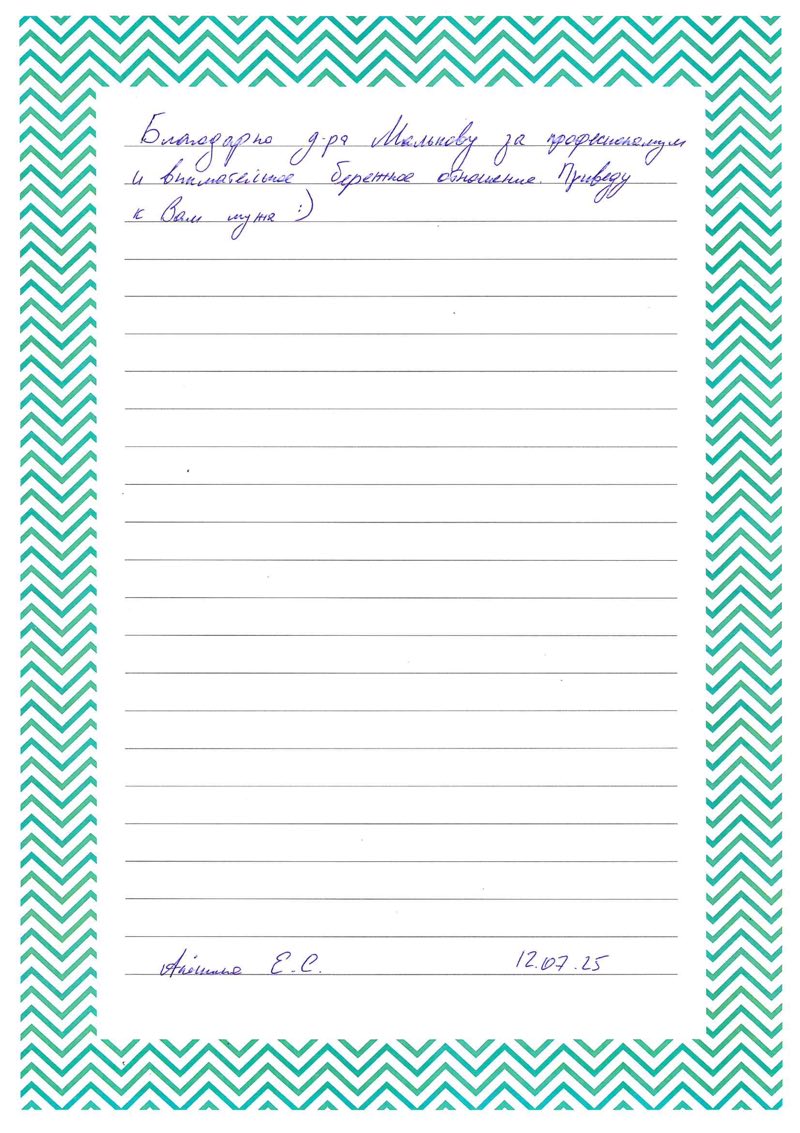 Благодарю д-ра Малькову за профессионализм
и внимательное бережное отношение. Приведу
к Вам мужа :)
Алёшина Е.С. 12.07.25